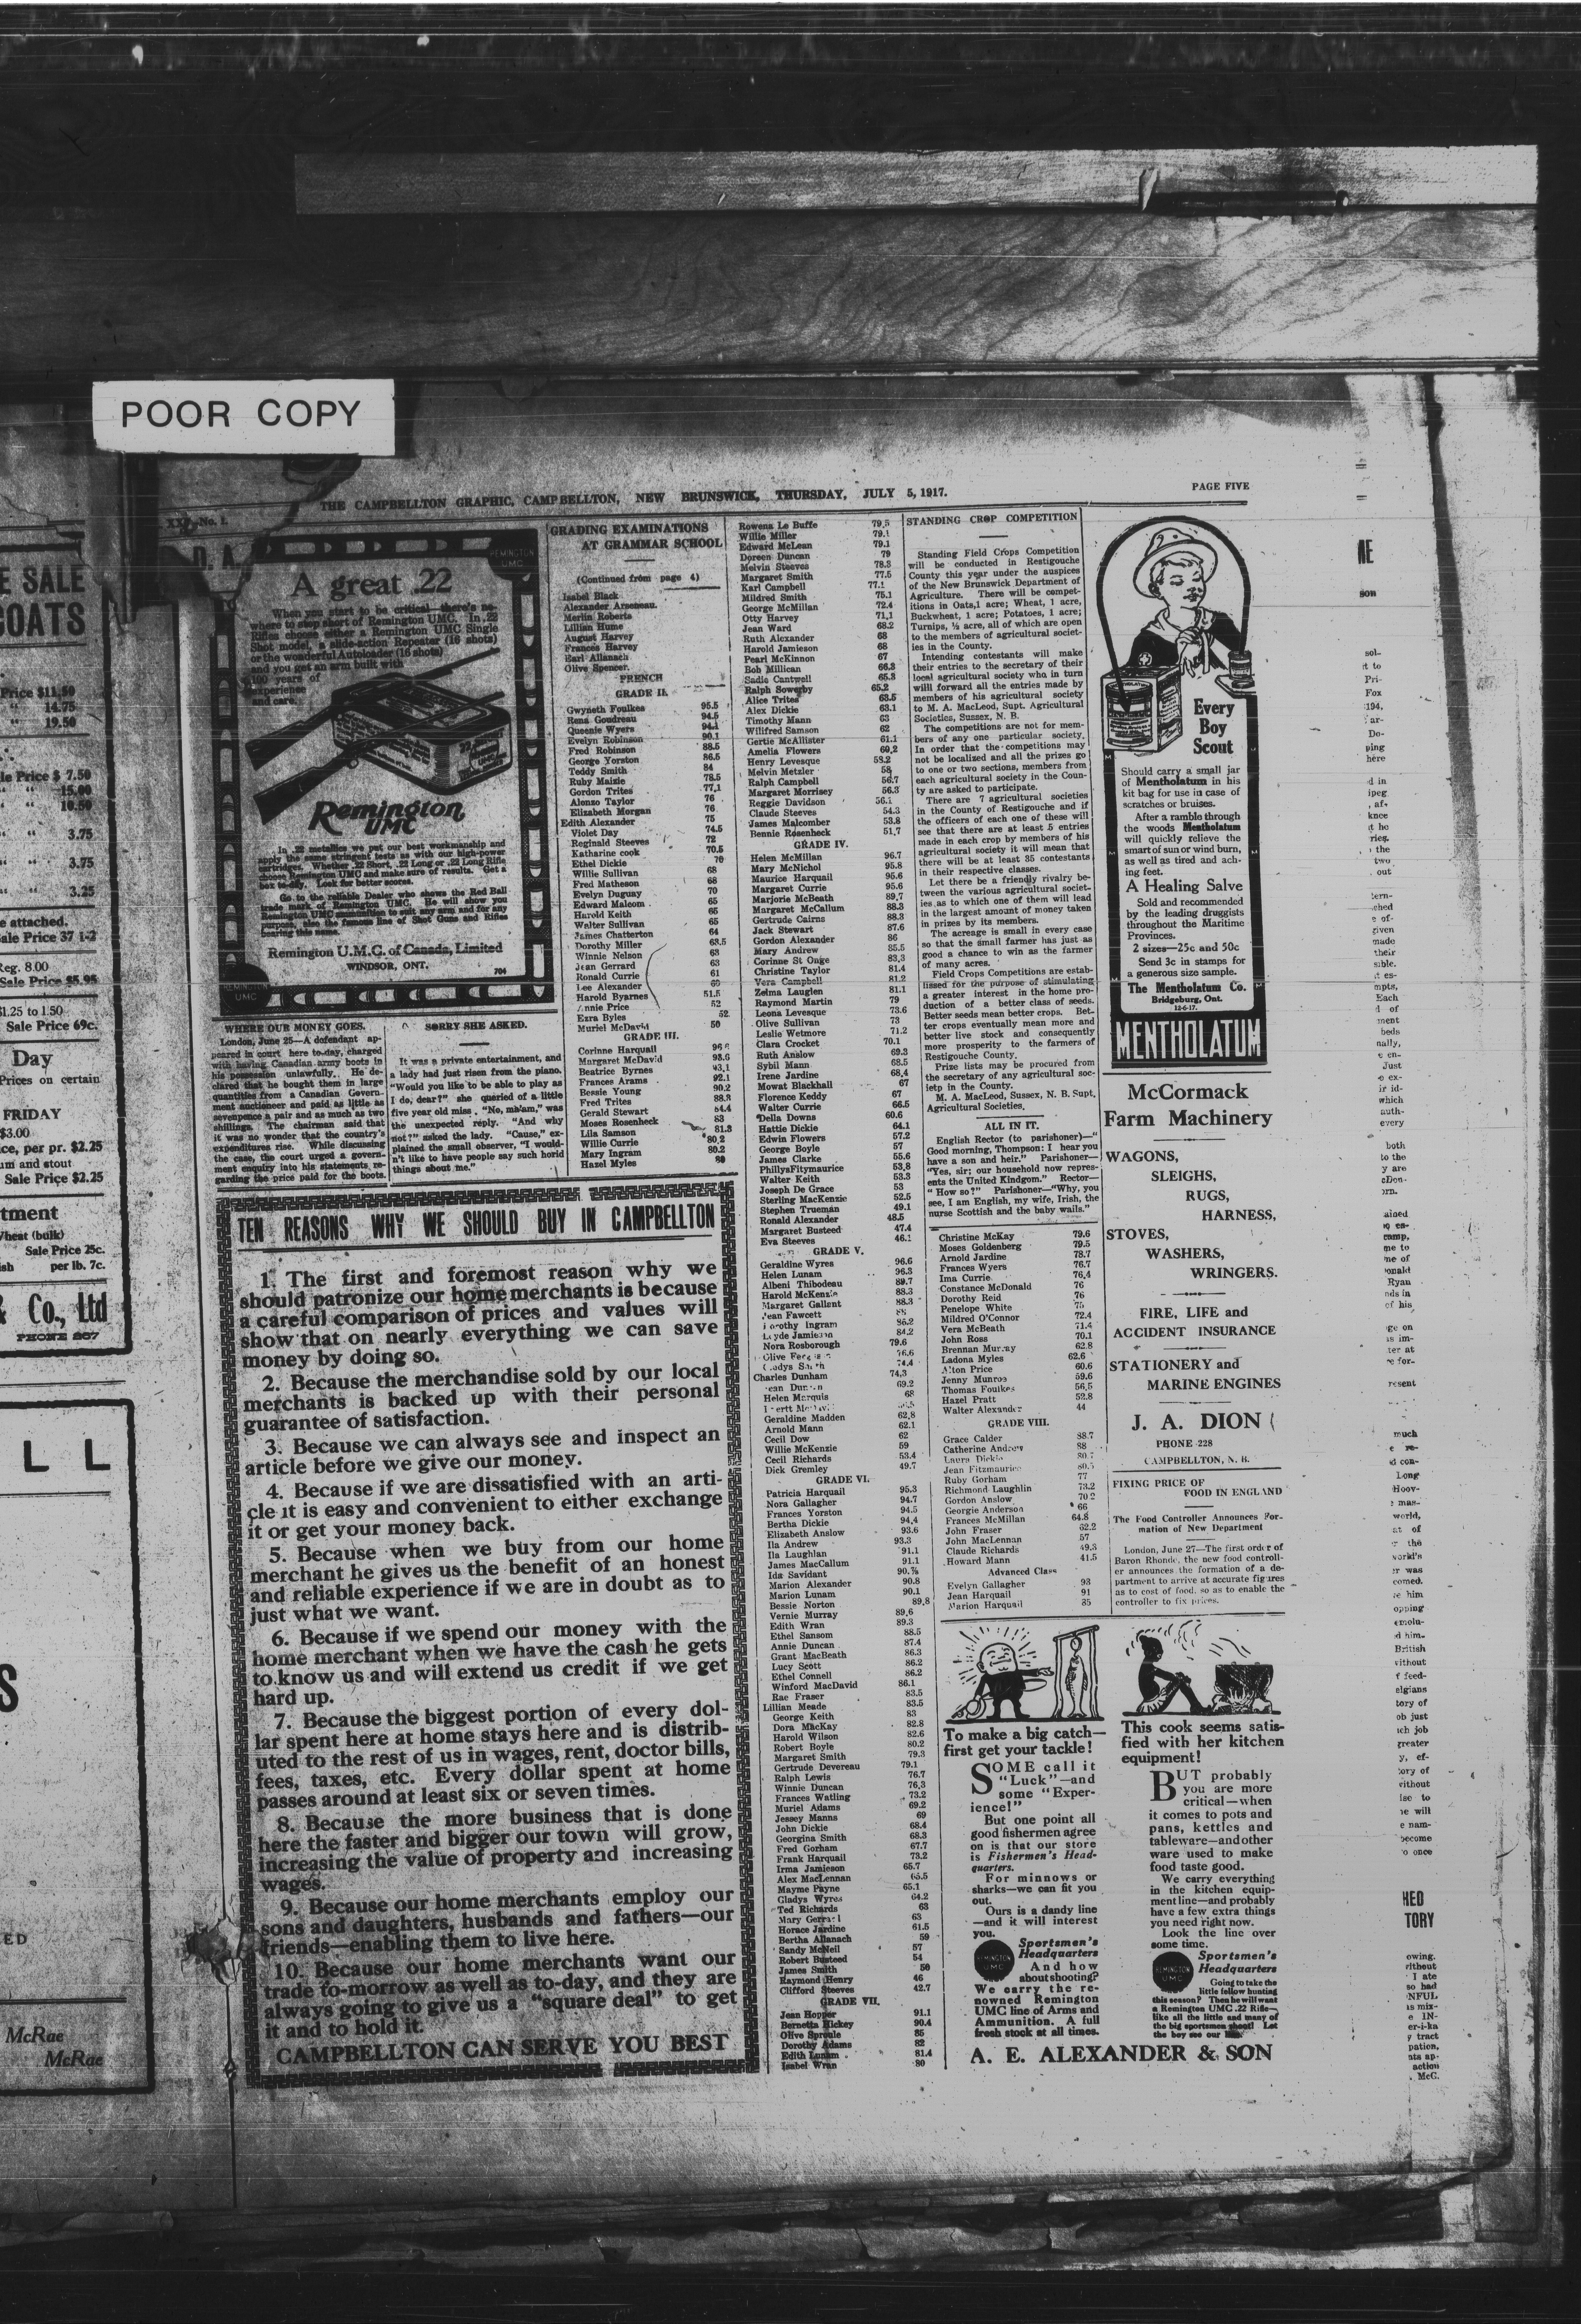 POOR COPY
THE CAMPBELLTON GRAPHIC, CAMPBELLTON, NEW BRUNSWICK, THURSDAY, JULY 5, 1917.
PAGE FIVE
E SALE
COATS
Price $11.50
" 14.75
" 19.50
le Price $ 7.50
" " 15.00
" " 10.50
" " 3.75
" " 3.75
" " 3.25
e attached.
ale Price 37 1-2
Reg. 8.00
Sale Price $5.95
$1.25 to 1.50
Sale Price 69c.
Day
Prices on certain
FRIDAY
$3.00
ce, per pr. $2.25
um and stout
Sale Price $2.25
tment
Wheat (bulk)
Sale Price 25c.
ish per lb. 7c.
& Co., Ltd
PHONE 267
L L
S
ED
McRae
McRae
XX No. 1.
D. A
REMINGTON
UMC
A great .22
When you start to be critical—there's no-
where to stop short of Remington UMC. In .22
Rifles choose either a Remington UMC Single
Shot model, a slide-action Repeater (16 shots)
or the wonderful Autoloader (16 shots)
—and you get an arm built with
100 years of
experience
and care.
Remington
UMC
In .22 metallics we put our best workmanship and
apply the same stringent tests as with our high-power
cartridges. Whether .22 Short, .22 Long or .22 Long Rifle
choose Remington UMC and make sure of results. Get a
box to-day. Look for better scores.
Go to the reliable Dealer who shows the Red Ball
trade mark of Remington UMC. He will show you
Remington UMC ammunition to suit any arm and for any
purpose, also the famous line of Shot Guns and Rifles
bearing this name.
Remington U.M.C. of Canada, Limited
WINDSOR, ONT.
704
WHERE OUR MONEY GOES.
London, June 25—A defendant ap-
peared in court here to-day, charged
with having Canadian army boots in
his possession unlawfully. He de-
clared that he bought them in large
quantities from a Canadian Govern-
ment auctioneer and paid as little as
sevenpence a pair and as much as two
shillings. The chairman said that
it was no wonder that the country's
expenditures rise. While discussing
the case, the court urged a govern-
ment enquiry into his statements re-
garding the price paid for the boots.
SORRY SHE ASKED.
It was a private entertainment, and
a lady had just risen from the piano.
"Would you like to be able to play as
I do, dear?" she queried of a little
five year old miss. "No, mh'am," was
the unexpected reply. "And why
not?" asked the lady. "Cause," ex-
plained the small observer, "I would-
n't like to have people say such horid
things about me."
TEN REASONS WHY WE SHOULD BUY IN CAMPBELLTON
1. The first and foremost reason why we
should patronize our home merchants is because
a careful comparison of prices and values will
show that on nearly everything we can save
money by doing so.
2. Because the merchandise sold by our local
merchants is backed up with their personal
guarantee of satisfaction.
3. Because we can always see and inspect an
article before we give our money.
4. Because if we are dissatisfied with an arti-
cle it is easy and convenient to either exchange
it or get your money back.
5. Because when we buy from our home
merchant he gives us the benefit of an honest
and reliable experience if we are in doubt as to
just what we want.
6. Because if we spend our money with the
home merchant when we have the cash he gets
to know us and will extend us credit if we get
hard up.
7. Because the biggest portion of every dol-
lar spent here at home stays here and is distrib-
uted to the rest of us in wages, rent, doctor bills,
fees, taxes, etc. Every dollar spent at home
passes around at least six or seven times.
8. Because the more business that is done
here the faster and bigger our town will grow,
increasing the value of property and increasing
wages.
9. Because our home merchants employ our
sons and daughters, husbands and fathers—our
friends—enabling them to live here.
10. Because our home merchants want our
trade to-morrow as well as to-day, and they are
always going to give us a "square deal" to get
it and to hold it.
CAMPBELLTON CAN SERVE YOU BEST
GRADING EXAMINATIONS
AT GRAMMAR SCHOOL
(Continued from page 4)
Isabel Black
Alexander Arseneau.
Merlin Roberts
Lillian Hume
August Harvey
Frances Harvey
Earl Allanach
Olive Spencer.
FRENCH
GRADE II.
Gwyneth Foulkes 95.5
Rena Goudreau 94.5
Queenie Wyers 94.1
Evelyn Robinson 90.1
Fred Robinson 88.5
George Yorston 86.5
Teddy Smith 84
Ruby Maizie 78.5
Gordon Trites 77,1
Alonzo Taylor 76
Elizabeth Morgan 76
Edith Alexander 75
Violet Day 74.5
Reginald Steeves 72
Katharine cook 70.5
Ethel Dickie 70
Willie Sullivan 68
Fred Matheson 68
Evelyn Duguay 70
Edward Malcom 65
Harold Keith 65
Walter Sullivan 65
James Chatterton 64
Dorothy Miller 63.5
Winnie Nelson 63
Jean Gerrard 63
Ronald Currie 61
Lee Alexander 60
Harold Byarnes 51.5
Annie Price 52
Ezra Byles 52
Muriel McDavid 50
GRADE III.
Corinne Harquail
Margaret McDavid 93.6
Beatrice Byrnes 93.1
Frances Arams 92.1
Bessie Young 90.2
Fred Trites 88.3
Gerald Stewart 84.4
Moses Rosenheck 83
Lila Samson 81.3
Willie Currie 80,2
Mary Ingram 80.2
Hazel Myles 80
Rowena Le Buffe 79,5
Willie Miller 79.1
Edward McLean 79.1
Doreen Duncan 79
Melvin Steeves 78.3
Margaret Smith 77.5
Karl Campbell 77.1
Mildred Smith 75.1
George McMillan 72.4
Otty Harvey 71,1
Jean Ward 68.2
Ruth Alexander 68
Harold Jamieson 68
Pearl McKinnon 67
Bob Millican 66.3
Sadie Cantwell 65.3
Ralph Sowerby 65.2
Alice Trites 63.5
Alex Dickie 63.1
Timothy Mann 63
Wilifred Samson 62
Gertie McAllister 61.1
Amelia Flowers 60,2
Henry Levesque 58.2
Melvin Metzler 58
Ralph Campbell 56.7
Margaret Morrisey 56.3
Reggie Davidson 56.1
Claude Steeves 54.3
James Malcomber 53.8
Bennie Rosenheck 51,7
GRADE IV.
Helen McMillan 96.7
Mary McNichol 95.8
Maurice Harquail 95.6
Margaret Currie 95.6
Marjorie McBeath 89,7
Margaret McCallum 88.3
Gertrude Cairns 88.3
Jack Stewart 87.6
Gordon Alexander 86
Mary Andrew 85.5
Corinne St Onge 83,3
Christine Taylor 81.4
Vera Campbell 81.2
Zelma Lauglen 81.1
Raymond Martin 79
Leona Levesque 73.6
Olive Sullivan 73
Leslie Wetmore 71.2
Clara Crocket 70.1
Ruth Anslow 69.3
Sybil Mann 68.5
Irene Jardine 68,4
Mowat Blackhall 67
Florence Keddy 67
Walter Currie 66.5
Della Downs 60.6
Hattie Dickie 64.1
Edwin Flowers 57.2
George Boyle 57
James Clarke 55.6
PhillyaFitymaurice 53,8
Walter Keith 53.3
Joseph De Grace 53
Sterling MacKenzie 52.5
Stephen Trueman 49.1
Ronald Alexander 48.5
Margaret Busteed 47.4
Eva Steeves 46.1
GRADE V.
Geraldine Wyres 96.6
Helen Lunam 96.3
Albeni Thibodeau 89.7
Harold McKenzie 88.3
Margaret Gallant 88.3
Jean Fawcett
Dorothy Ingram 86.2
Jamieson 84.2
Nora Rosborough 79.6
Olive 76.6
74,4
Charles Dunham 74,3
69.2
Helen Marquis 68
Geraldine Madden 62,8
Arnold Mann 62.1
Cecil Dow 62
Willie McKenzie 59
Cecil Richards 53.4
Dick Gremley 49.7
GRADE VI.
Patricia Harquail 95.3
Nora Gallagher 94.7
Frances Yorston 94.5
Bertha Dickie 94,4
Elizabeth Anslow 93.6
Ila Andrew 93.3
Ila Laughlan 91.1
James MacCallum 91.1
Ida Savidant
Marion Alexander 90.8
Marion Lunam 90.1
Bessie Norton 89,8
Vernie Murray 89,6
Edith Wran 89.3
Ethel Sansom 88.5
Annie Duncan 87.4
Grant MacBeath 86.3
Lucy Scott 86.2
Ethel Connell 86.2
Winford MacDavid 86.1
Rae Fraser 83.5
Lillian Meade 83.5
George Keith 83
Dora MacKay 82.8
Harold Wilson 82.6
Robert Boyle 80.2
Margaret Smith 79.3
Gertrude Devereau 79.1
Ralph Lewis 76.7
Winnie Duncan 76,3
Frances Watling 73.2
Muriel Adams 69.2
Jessey Manns 69
John Dickie 68.4
Georgina Smith 68.3
Fred Gorham 67.7
Frank Harquail 73.2
Irma Jamieson 65.7
Alex MacLennan 65.5
Mayme Payne 65.1
Gladys Wyres 64.2
Ted Richards 63
Mary 63
Horace Jardine 61.5
Bertha Allanach 59
Sandy McNeil 57
Robert Busteed 54
James Smith 50
Raymond Henry 46
Clifford Steeves 42.7
GRADE VII.
Jean Hopper 91.1
Bernetta Hickey 90.4
Olive Sproule 85
Dorothy Adams 82
Edith Lunam 81.4
Isabel Wran 80
STANDING CROP COMPETITION
Standing Field Crops Competition
will be conducted in Restigouche
County this year under the auspices
of the New Brunswick Department of
Agriculture. There will be compet-
itions in Oats,1 acre; Wheat, 1 acre,
Buckwheat, 1 acre; Potatoes, 1 acre;
Turnips, ½ acre, all of which are open
to the members of agricultural societ-
ies in the County.
Intending contestants will make
their entries to the secretary of their
local agricultural society who in turn
will forward all the entries made by
members of his agricultural society
to M. A. MacLeod, Supt. Agricultural
Societies, Sussex, N. B.
The competions are not for mem-
bers of any one particular society.
In order that the competitions may
not be localized and all the prizes go
to one or two sections, members from
each agricultural society in the Coun-
ty are asked to participate.
There are 7 agricultural societies
in the County of Restigouche and if
the officers of each one of these will
see that there are at least 5 entries
made in each crop by members of his
agricultural society it will mean that
there will be at least 35 contestants
in their respective classes.
Let there be a friendly rivalry be-
tween the various agricultural societ-
ies as to which one of them will lead
in the largest amount of money taken
in prizes by its members.
The acreage is small in every case
so that the small farmer has just as
good a chance to win as the farmer
of many acres.
Field Crops Competions are estab-
lissed for the purpose of stimulating
a greater interest in the home pro-
duction of a better class of seeds.
Better seeds mean better crops. Bet-
ter crops eventually mean more and
better live stock and consequently
more prosperity to the farmers of
Restigouche County.
Prize lists may be procured from
the secretary of any agricultural soc-
ietp in the County.
M. A. MacLeod, Sussex, N. B. Supt.
Agricultural Societies.
ALL IN IT.
English Rector (to parishoner)—"
Good morning, Thompson: I hear you
have a son and heir." Parishoner—
"Yes, sir; our household now repres-
ents the United Kindgom." Rector—
" How so?" Parishoner—"Why, you
see, I am English, my wife, Irish, the
nurse Scottish and the baby wails."
Christine McKay 79.6
Moses Goldenberg 79.5
Arnold Jardine 78.7
Frances Wyers 76.7
Ima Currie 76,4
Constance McDonald 76
Dorothy Reid 76
Penelope White 75
Mildred O'Connor 72.4
Vera McBeath 71.4
John Ross 70.1
Brennan Murray 62.8
Ladona Myles 62.6
Alton Price 60.6
Jenny Munroe 59.6
Thomas Foulkes 56,5
Hazel Pratt 52.8
Walter Alexander 44
GRADE VIII.
Grace Calder 88.7
Catherine Andrew 88
Laura Dickie
Jean Fitzmaurice
Ruby Gorham 77
Richmond Laughlin 73.2
Gordon Anslow 70 2
Georgie Anderson 66
Frances McMillan 64.8
John Fraser 62.2
John MacLennan 57
Claude Richards 49.3
Howard Mann 41.5
Advanced Class
Evelyn Gallagher 93
Jean Harquail 91
Marion Harquail 85
Every
Boy
Scout
Should carry a small jar
of Mentholatum in his
kit bag for use in case of
scratches or bruises.
After a ramble through
the woods Mentholatum
will quickly relieve the
smart of sun or wind burn,
as well as tired and ach-
ing feet.
A Healing Salve
Sold and recommended
by the leading druggists
throughout the Maritime
Provinces.
2 sizes—25c and 50c
Send 3c in stamps for
a generous size sample.
The Mentholatum Co.
Bridgeburg, Ont.
12-6-17.
MENTHOLATUM
McCormack
Farm Machinery
WAGONS,
SLEIGHS,
RUGS,
HARNESS,
STOVES,
WASHERS,
WRINGERS.
FIRE, LIFE and
ACCIDENT INSURANCE
STATIONERY and
MARINE ENGINES
J. A. DION
PHONE 228
CAMPBELLTON, N. B.
FIXING PRICE OF
FOOD IN ENGLAND
The Food Controller Announces For-
mation of New Department
London, June 27—The first order of
Baron Rhondc, the new food controll-
er announces the formation of a de-
partment to arrive at accurate figures
as to cost of food, so as to enable the
controller to fix prices.
To make a big catch—
first get your tackle!
SOME call it
"Luck"—and
some "Exper-
ience!"
But one point all
good fishermen agree
on is that our store
is Fishermen's Head-
quarters.
For minnows or
sharks—we can fit you
out.
Ours is a dandy line
—and it will interest
you.
REMINGTON
UMC
Sportsmen's
Headquarters
And how
about shooting?
We carry the re-
nowned Remington
UMC line of Arms and
Ammunition. A full
fresh stock at all times.
This cook seems satis-
fied with her kitchen
equipment!
BUT probably
you are more
critical—when
it comes to pots and
pans, kettles and
tableware—and other
ware used to make
food taste good.
We carry everything
in the kitchen equip-
ment line—and probably
have a few extra things
you need right now.
Look the line over
some time.
REMINGTON
UMC
Sportsmen's
Headquarters
Going to take the
little fellow hunting
this season? Then he will want
a Remington UMC .22 Rifle—
like all the little and many of
the big sportsmen shoot! Let
the boy see our
A. E. ALEXANDER & SON